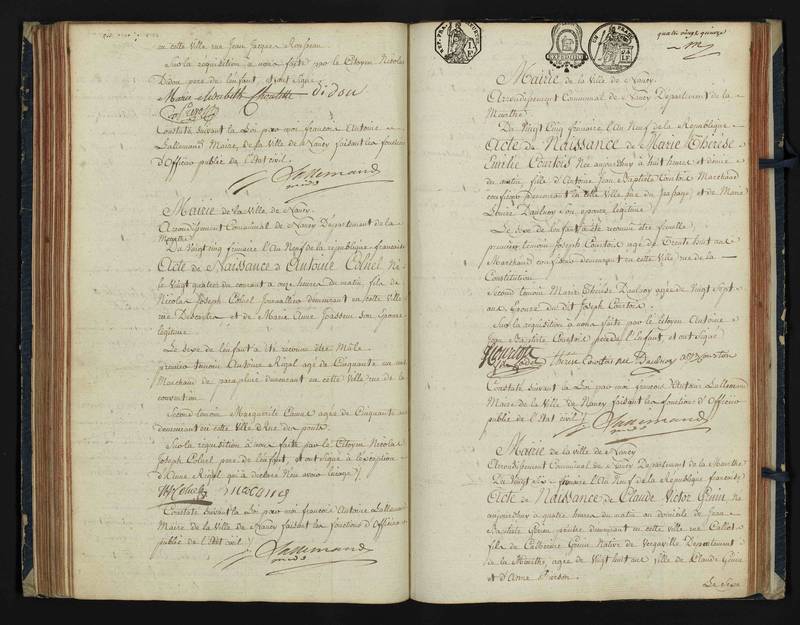 en cette Ville rue Jean Jacques Rousseau
Sur la requisition à nous faite par le Citoyen Nicolas
Didou pere de l'enfant et ont signé
Marie elisabeth Choulette didou
Constaté suivant la Loi par moi françois Antoine
Lallemand Maire, de la Ville de Nancy faisant les fonctions
d'Officier public de l'Etat civil.
Lallemand
Mairie de la Ville de Nancy.
Arrondissement Communal de Nancy Département de la
Meurthe
Du Vingt cinq frimaire l'An Neuf de la republique française
Acte de Naissance d'Antoine Colnel Né
le Vingt quatre du courant à onze heures du matin, fils de
Nicolas Joseph Colnel Journallier demeurant en cette Ville
rue Descartes et de Marie Anne son Epouse
légitime
Le sexe de l'enfant à été reconnu être Mâle.
premier temoin Antoine Rigal agé de Cinquante un ans
Marchand de parapluie demeurant en cette Ville rue de la
convention
Second temoin Marguerite Canne agée de Cinquante ans
demeurant en cette Ville Rue des ponts.
Sur la requisition à nous faite par le Citoyen Nicolas
Joseph Colnel pere de l'enfant, et ont signé à l'exception
d'Anne Rigal qui à déclaré N'en avoir l'usage
Constaté suivant la Loi par moi françois Antoine Lallemand
Maire de la Ville de Nancy faisant les fonctions d'Officier
public de l'Etat civil
Lallemand
quatre vingt quinze
Mairie de la Ville de Nancy.
Arrondissement Communal de Nancy Département de la
Meurthe
Du Vingt Cinq frimaire l'An Neuf de la République
Acte de Naissance de Marie Thérèse
Emilie Courtois Née aujourd'huy à huit heures et demie
du matin, fille d'Antoine Jean Baptiste Courtois Marchand
confiseur demeurant en cette Ville rue du passage et de Marie
Louise Daulnoy son epouse légitime
Le sexe de l'enfant à été reconnu être femelle,
premier temoin Joseph Courtois agé de Trente huit ans
Marchand confiseur demeurant en cette Ville rue de la
Constitution
Second temoin Marie Thérèse Daulnoy agée de Vingt sept
ans Epouse du dit Joseph Courtois.
Sur la requisition à nous faite par le Citoyen Antoine
Jean Baptiste Courtois pere de l'Enfant, et ont signé
Courtois thérese Courtois née Daulnoy
Constaté suivant la Loi par moi françois Antoine Lallemand
Maire de la Ville de Nancy faisant les fonctions d'Officier
public de l'Etat civil
Lallemand
Mairie de la Ville de Nancy
Arrondissement Communal de Nancy Département de la Meurthe
Du Vingt six frimaire l'An Neuf de la République française
Acte de Naissance de Claude Victor né
aujourd'huy a quatre heures du matin au domicile de Jean
Baptiste peintre demeurant en cette Ville rue Callot
fils de Catherine Native de Vergaville Département
de la Meurthe, agée de Vingt huit ans fille de Claude
et d'Anne
Le Sexe